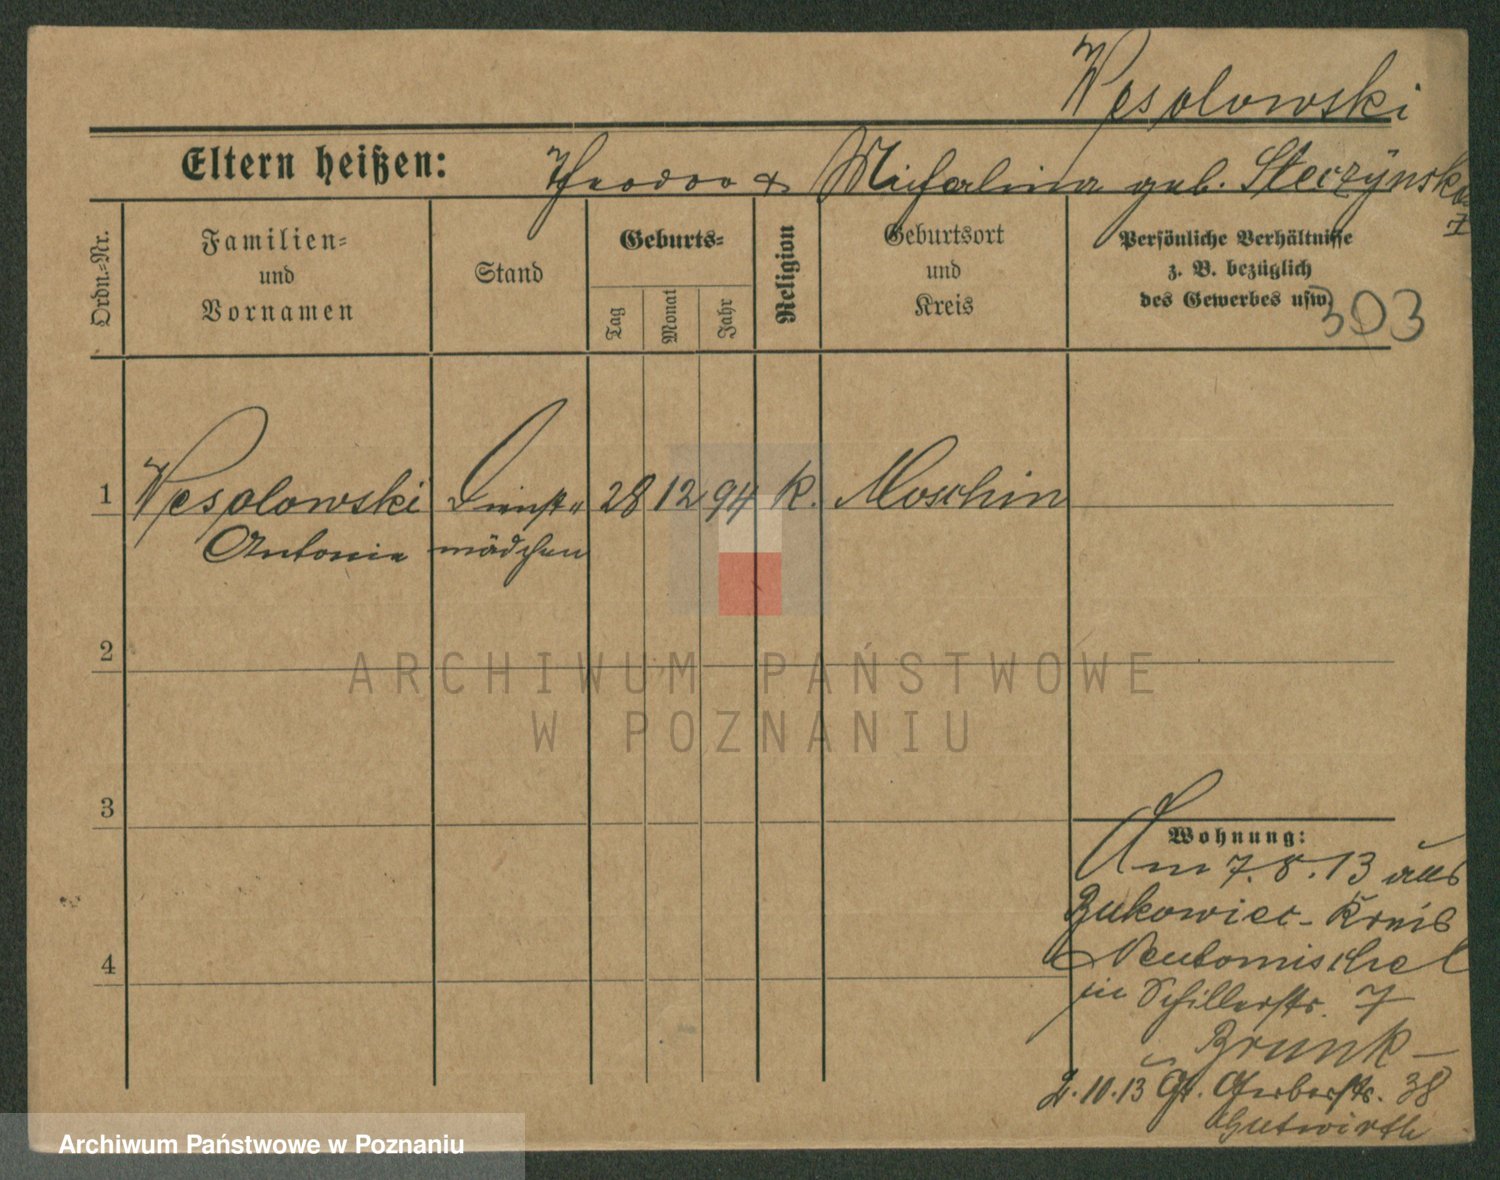 Wesolowski
Eltern heißen: Theodor & Michalina geb. Steczynska
Ordn.=Nr.
Familien=
und
Vornamen
Stand
Geburts=
Tag
Monat
Jahr
Religion
Geburtsort
und
Kreis
Persönliche Verhältnisse
z. B. bezüglich
des Gewerbes usw.
303
1 Wesolowski Dienst= 28 12 94 k. Moschin
Antonie mädchen
2
ARCHIWUM PAŃSTWOWE
W POZNANIU
3
Wohnung:
Am 7.8.13 aus
Bukowiec - Kreis
Neutomischel
in Schillerstr. 7
Brunk -
2.10.13 Gr. Gerberstr. 38
Gutwirth
4
Archiwum Państwowe w Poznaniu